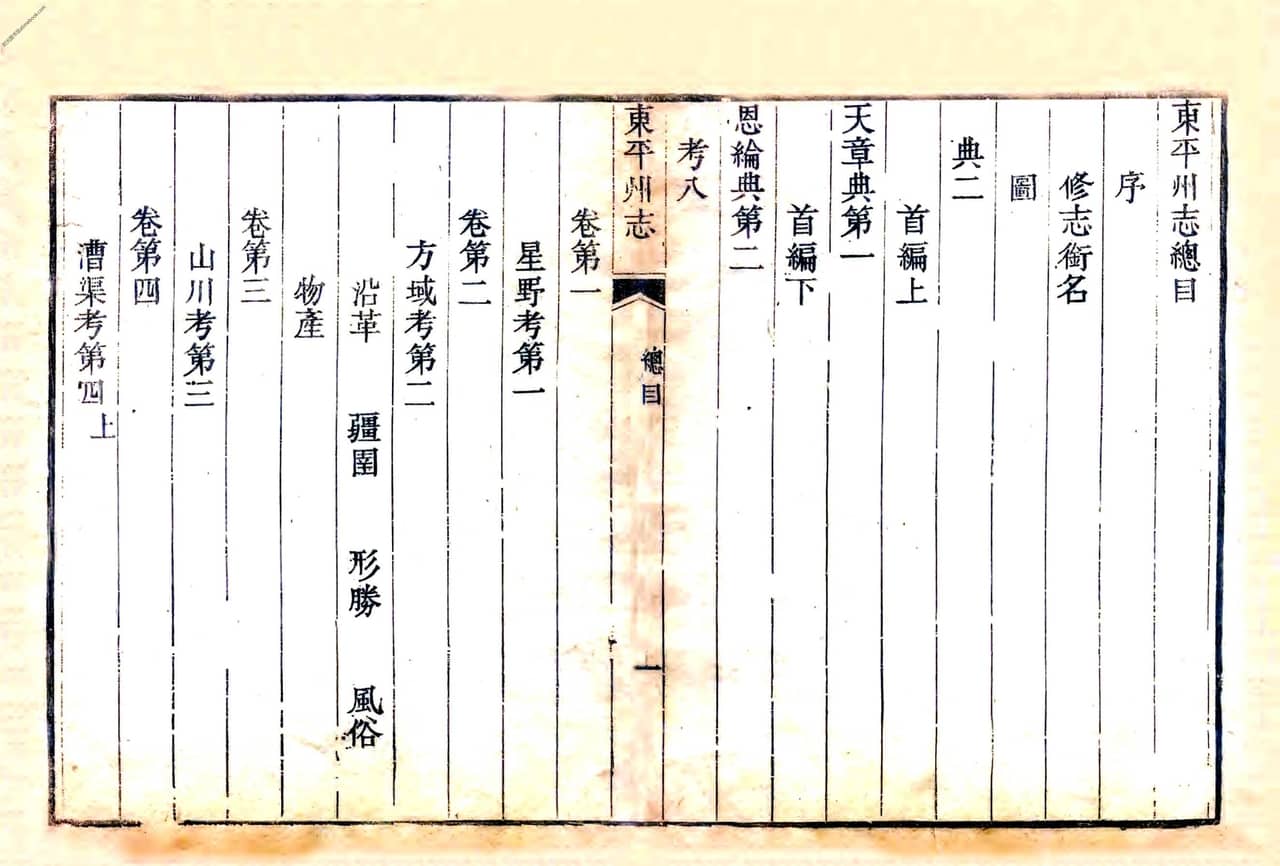 東平州志總目
序
修志銜名
圖
典二
首編上
天章典第一
首編下
恩綸典第二
考八
東平州志 總目 一
卷第一
星野考第一
卷第二
方域考第二
沿革 疆圉 形勝 風俗
物產
卷第三
山川考第三
卷第四
漕渠考第四上